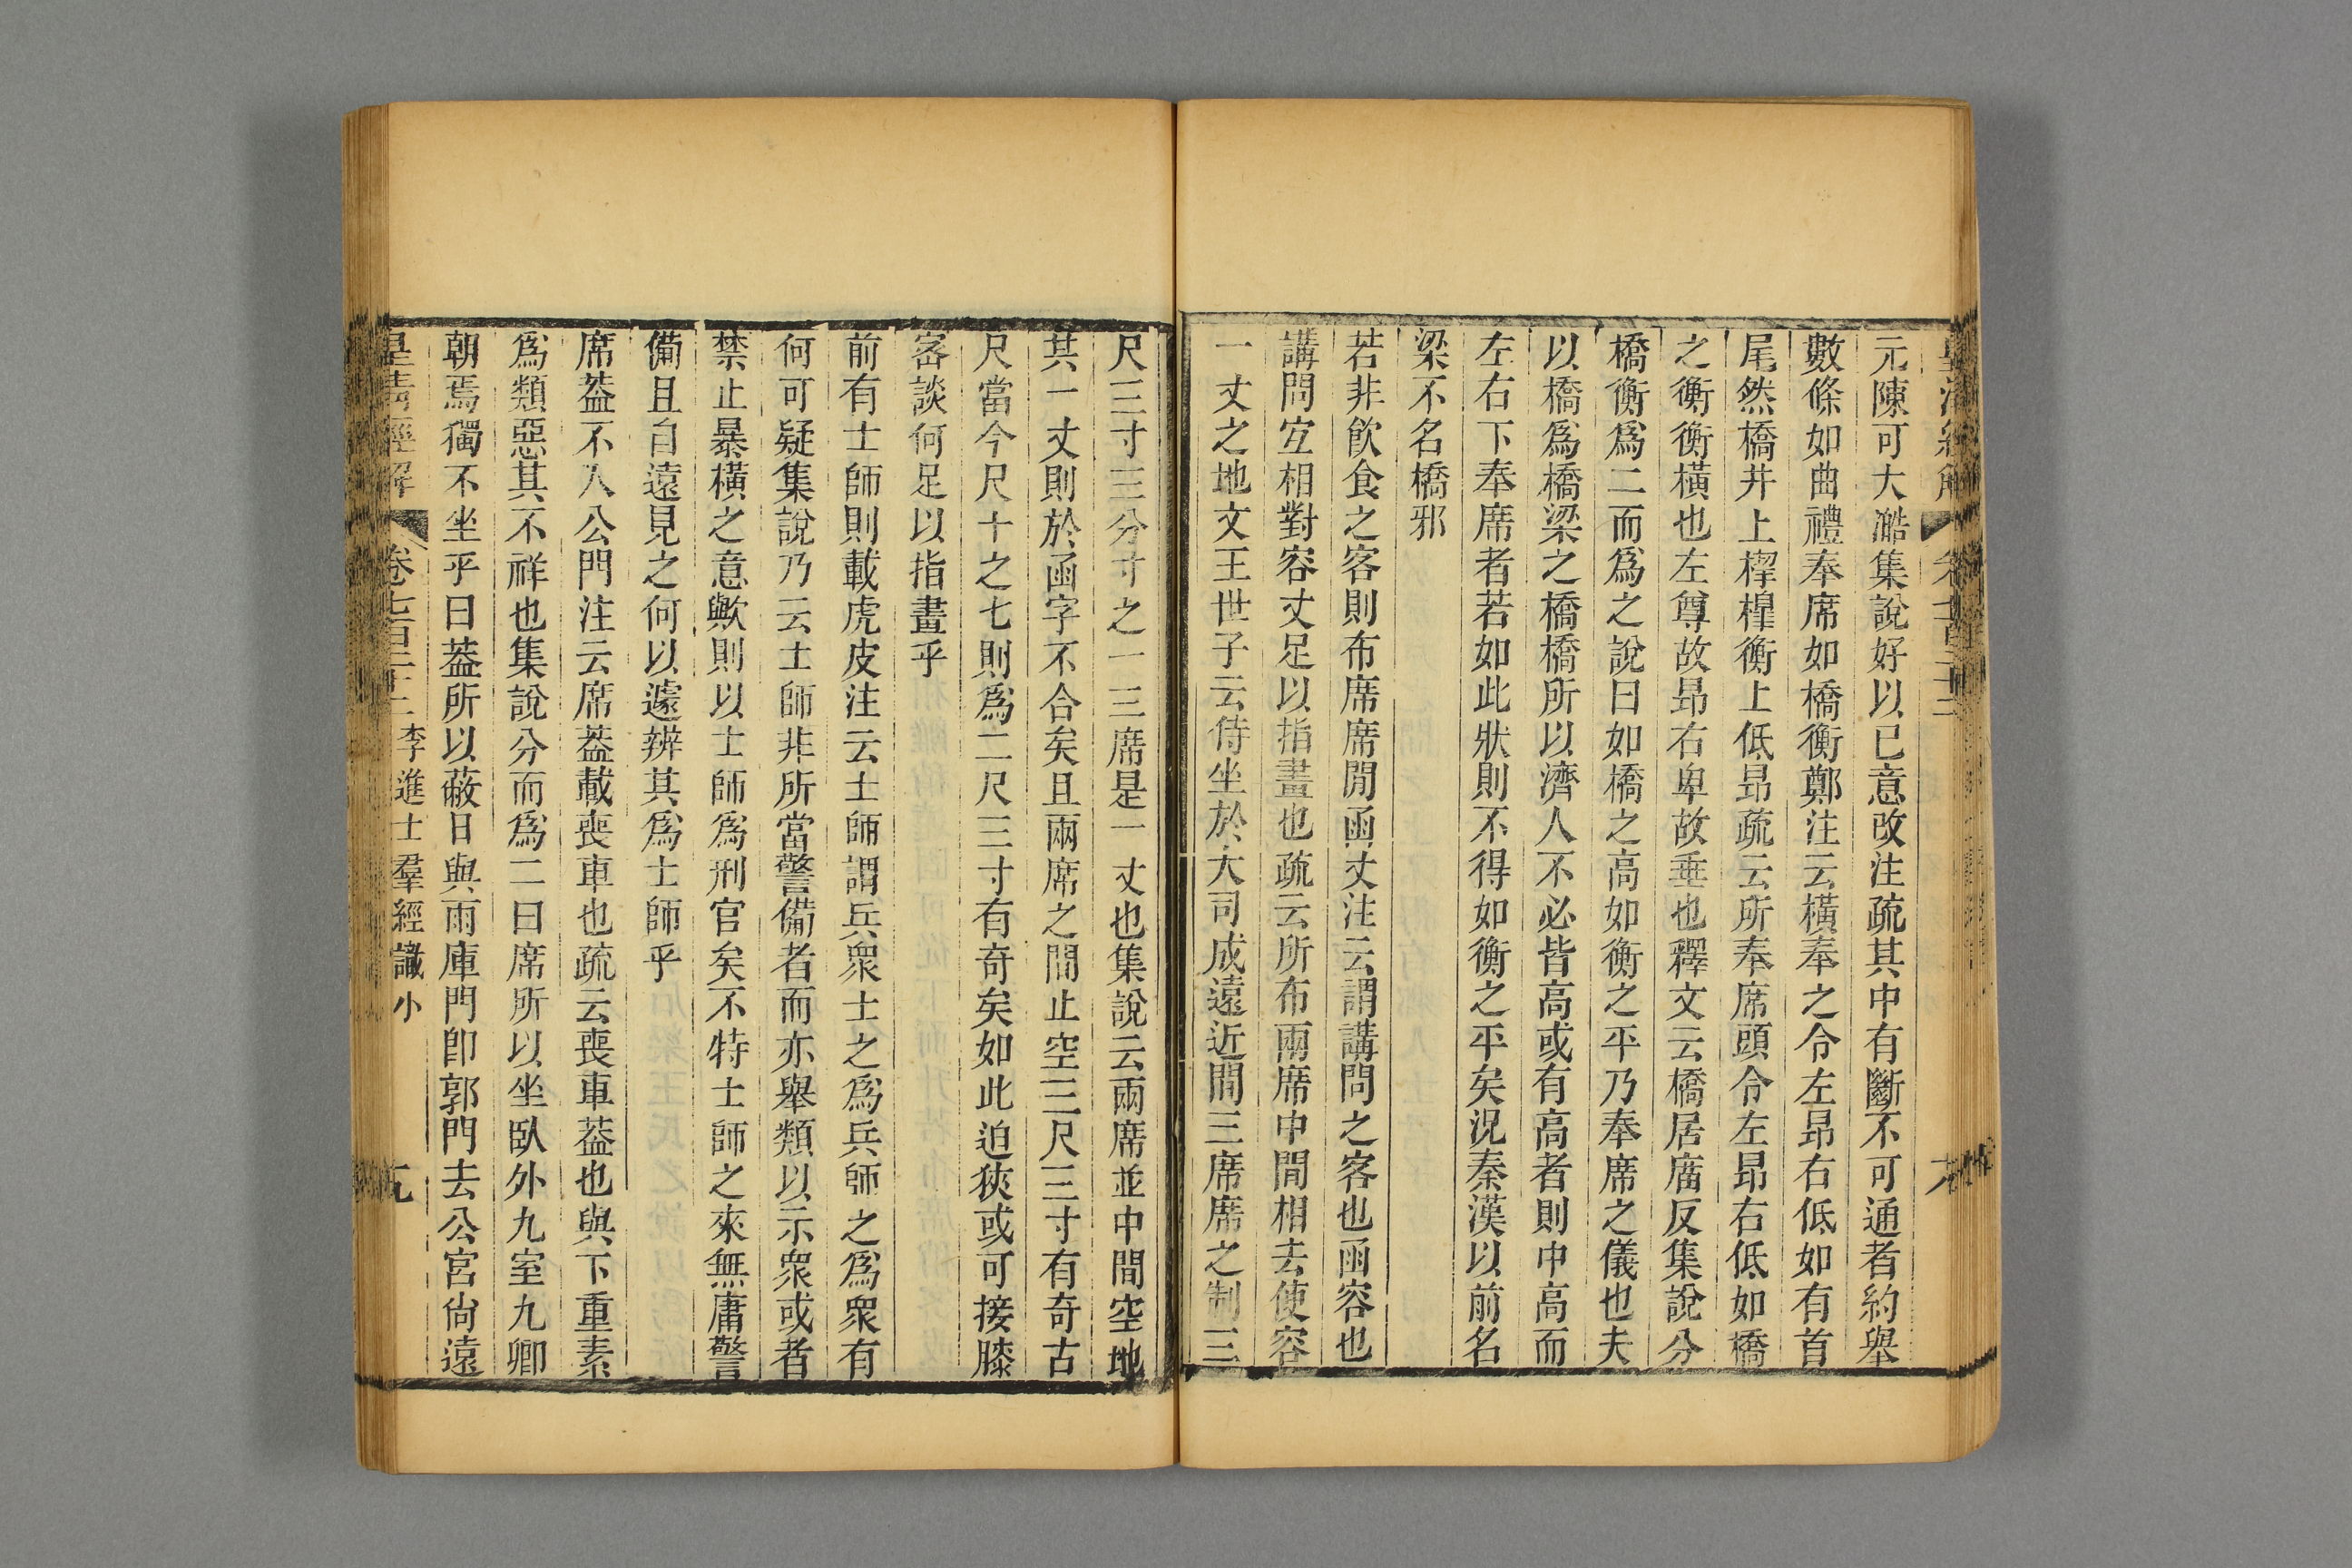 皇清經解
元陳可大澔集說好以已意改注疏其中有斷不可通者約舉
數條如曲禮奉席如橋衡鄭注云橫奉之令左昂右低如有首
尾然橋井上㮮槹衡上低昂疏云所奉席頭令左昂右低如橋
之衡衡橫也左尊故昂右卑故垂也釋文云橋居庿反集說分
橋衡爲二而爲之說曰如橋之高如衡之平乃奉席之儀也夫
以橋爲橋梁之橋橋所以濟人不必皆高或有高者則中高而
左右下奉席者若如此狀則不得如衡之平矣況秦漢以前名
梁不名橋邪
若非飮食之客則布席席閒函丈注云謂講問之客也函容也
講問宜相對容丈足以指畫也疏云所布兩席中間相去使容
一丈之地文王世子云侍坐於大司成遠近間三席席之制三
尺三寸三分寸之一三席是一丈也集說云兩席並中間空地
其一丈則於函字不合矣且兩席之間止空三尺三寸有奇古
尺當今尺十之七則爲二尺三寸有奇矣如此迫狹或可接膝
宻談何足以指畫乎
前有士師則載虎皮注云士師謂兵衆士之爲兵師之爲衆有
何可疑集說乃云士師非所當警備者而亦舉類以示衆或者
禁止暴橫之意歟則以士師爲刑官矣不特士師之來無庸警
備且自遠見之何以遽辨其爲士師乎
席葢不入公門注云席葢載喪車也疏云喪車葢也與下重素
爲類惡其不祥也集說分而爲二曰席所以坐臥外九室九卿
朝焉獨不坐乎曰葢所以蔽日與雨庫門卽郭門去公宮尙遠
皇淸經解 卷七百二十二 李進士羣經識小